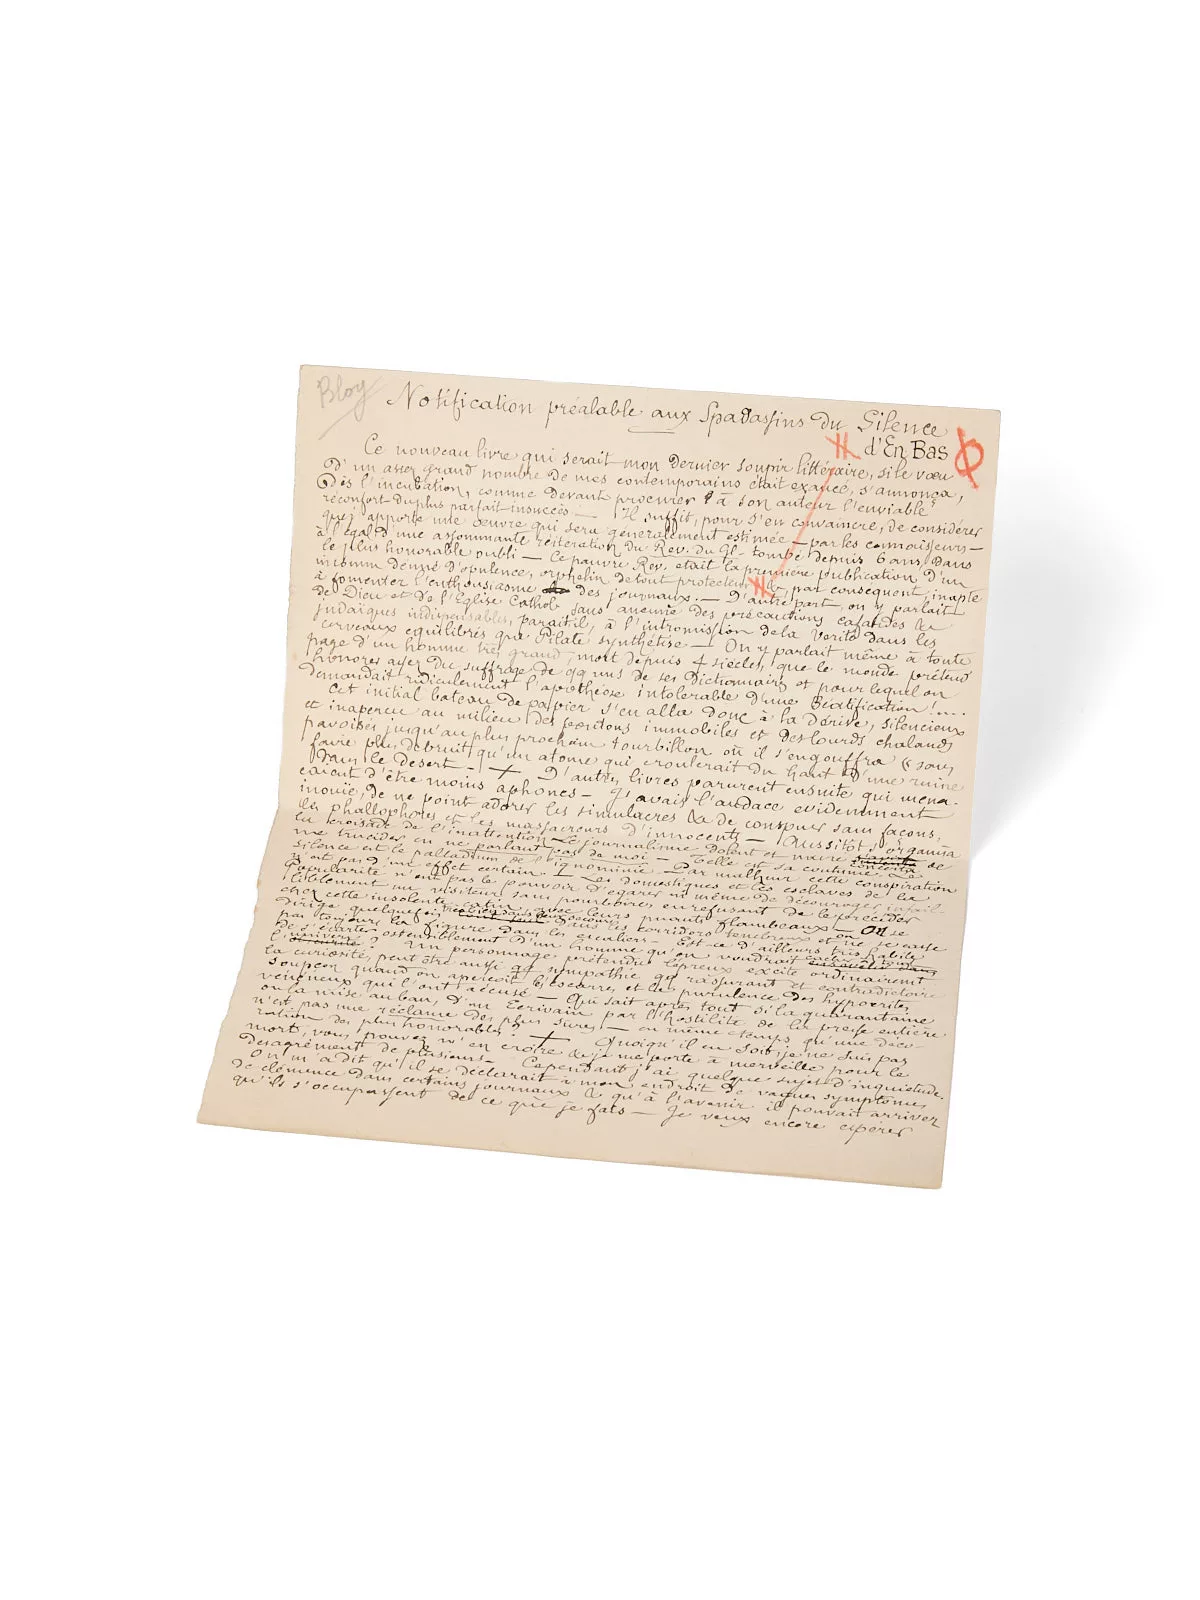 Bloy
Notification préalable aux Spadassins du Silence
d'En Bas
Ce nouveau livre qui serait mon dernier soupir littéraire, si le vœu
d'un assez grand nombre de mes contemporains était exaucé, s'annonça,
dès l'incubation, comme devant procurer à son auteur l'enviable
réconfort du plus parfait insuccès. — Il suffit, pour s'en convaincre, de considérer
que j'apporte une œuvre qui sera généralement estimée — par les connaisseurs —
à l'égal d'une assommante réitération du Rev. du Gl. tombé depuis 6 ans, dans
le plus honorable oubli — Ce pauvre Rev. était la première publication d'un
inconnu dénué d'opulence, orphelin de tout protecteur &, par conséquent, inapte
à fomenter l'enthousiasme des journaux. — D'autre part, on y parlait
de Dieu et de l'Eglise Cathol. sans aucune des précautions cafardes &
judaïques indispensables, paraît-il, à l'intromission de la Vérité dans les
cerveaux équilibrés que Pilate synthétise — On y parlait même à toute
page d'un homme très grand, mort depuis 4 siècles, que le monde prétend
honorer assez du suffrage de qq uns de ses Dictionnaires et pour lequel on
demandait ridiculement l'apothéose intolérable d'une Béatification !....
Cet initial bateau de papier s'en alla donc à la dérive, silencieux
et inaperçu au milieu des pontons immobiles et des lourds chalands
pavoisés, jusqu'au plus prochain tourbillon où il s'engouffra sans
faire plus de bruit qu'un atome qui croulerait du haut d'une ruine
dans le désert. — + D'autres livres parurent ensuite qui mena-
çaient d'être moins aphones — J'avais l'audace évidemment
inouïe, de ne point adorer les simulacres & de conspuer sans façons,
les phallophores et les massacreurs d'innocents — Aussitôt s'organisa
la croisade de l'inattention. Le journalisme dolent et navré de
me trucider en ne parlant pas de moi — Telle est sa coutume. Le
silence est le palladium de l'ignominie — Par malheur cette conspiration
n'est pas d'un effet certain. Les domestiques et les esclaves de la
Popularité n'ont pas le pouvoir d'égarer ni même de décourager infail-
liblement un visiteur sans pourboires, en refusant de le précéder
chez cette insolente catin, avec leurs puants flambeaux — On se
dirige quelquefois dans les corridors ténébreux et on ne se casse
pas toujours la figure dans les escaliers — Est-ce d'ailleurs très habile
de s'écarter ostensiblement d'un homme qu'on voudrait
l'univers ? Un personnage prétendu lépreux excite ordinairement
la curiosité, peut être aussi qq sympathie
soupçon quand on aperçoit les escarres et la purulence des hypocrites
venimeux qui l'ont accusé — Qui sait après tout si la quarantaine
ou la mise au ban, d'un Ecrivain par l'hostilité de la presse entière
n'est pas une réclame des plus sûres — en même temps qu'une déco-
ration des plus honorables ? + Quoiqu'il en soit, je ne suis pas
mort, vous pouvez m'en croire & je me porte à merveille pour le
désagrément de plusieurs — Cependant j'ai quelque sujet d'inquiétude.
On m'a dit qu'il se déclarait à mon endroit de vagues symptômes
de clémence dans certains journaux & qu'à l'avenir il pouvait arriver
qu'ils s'occupassent de ce que je fais — Je veux encore espérer